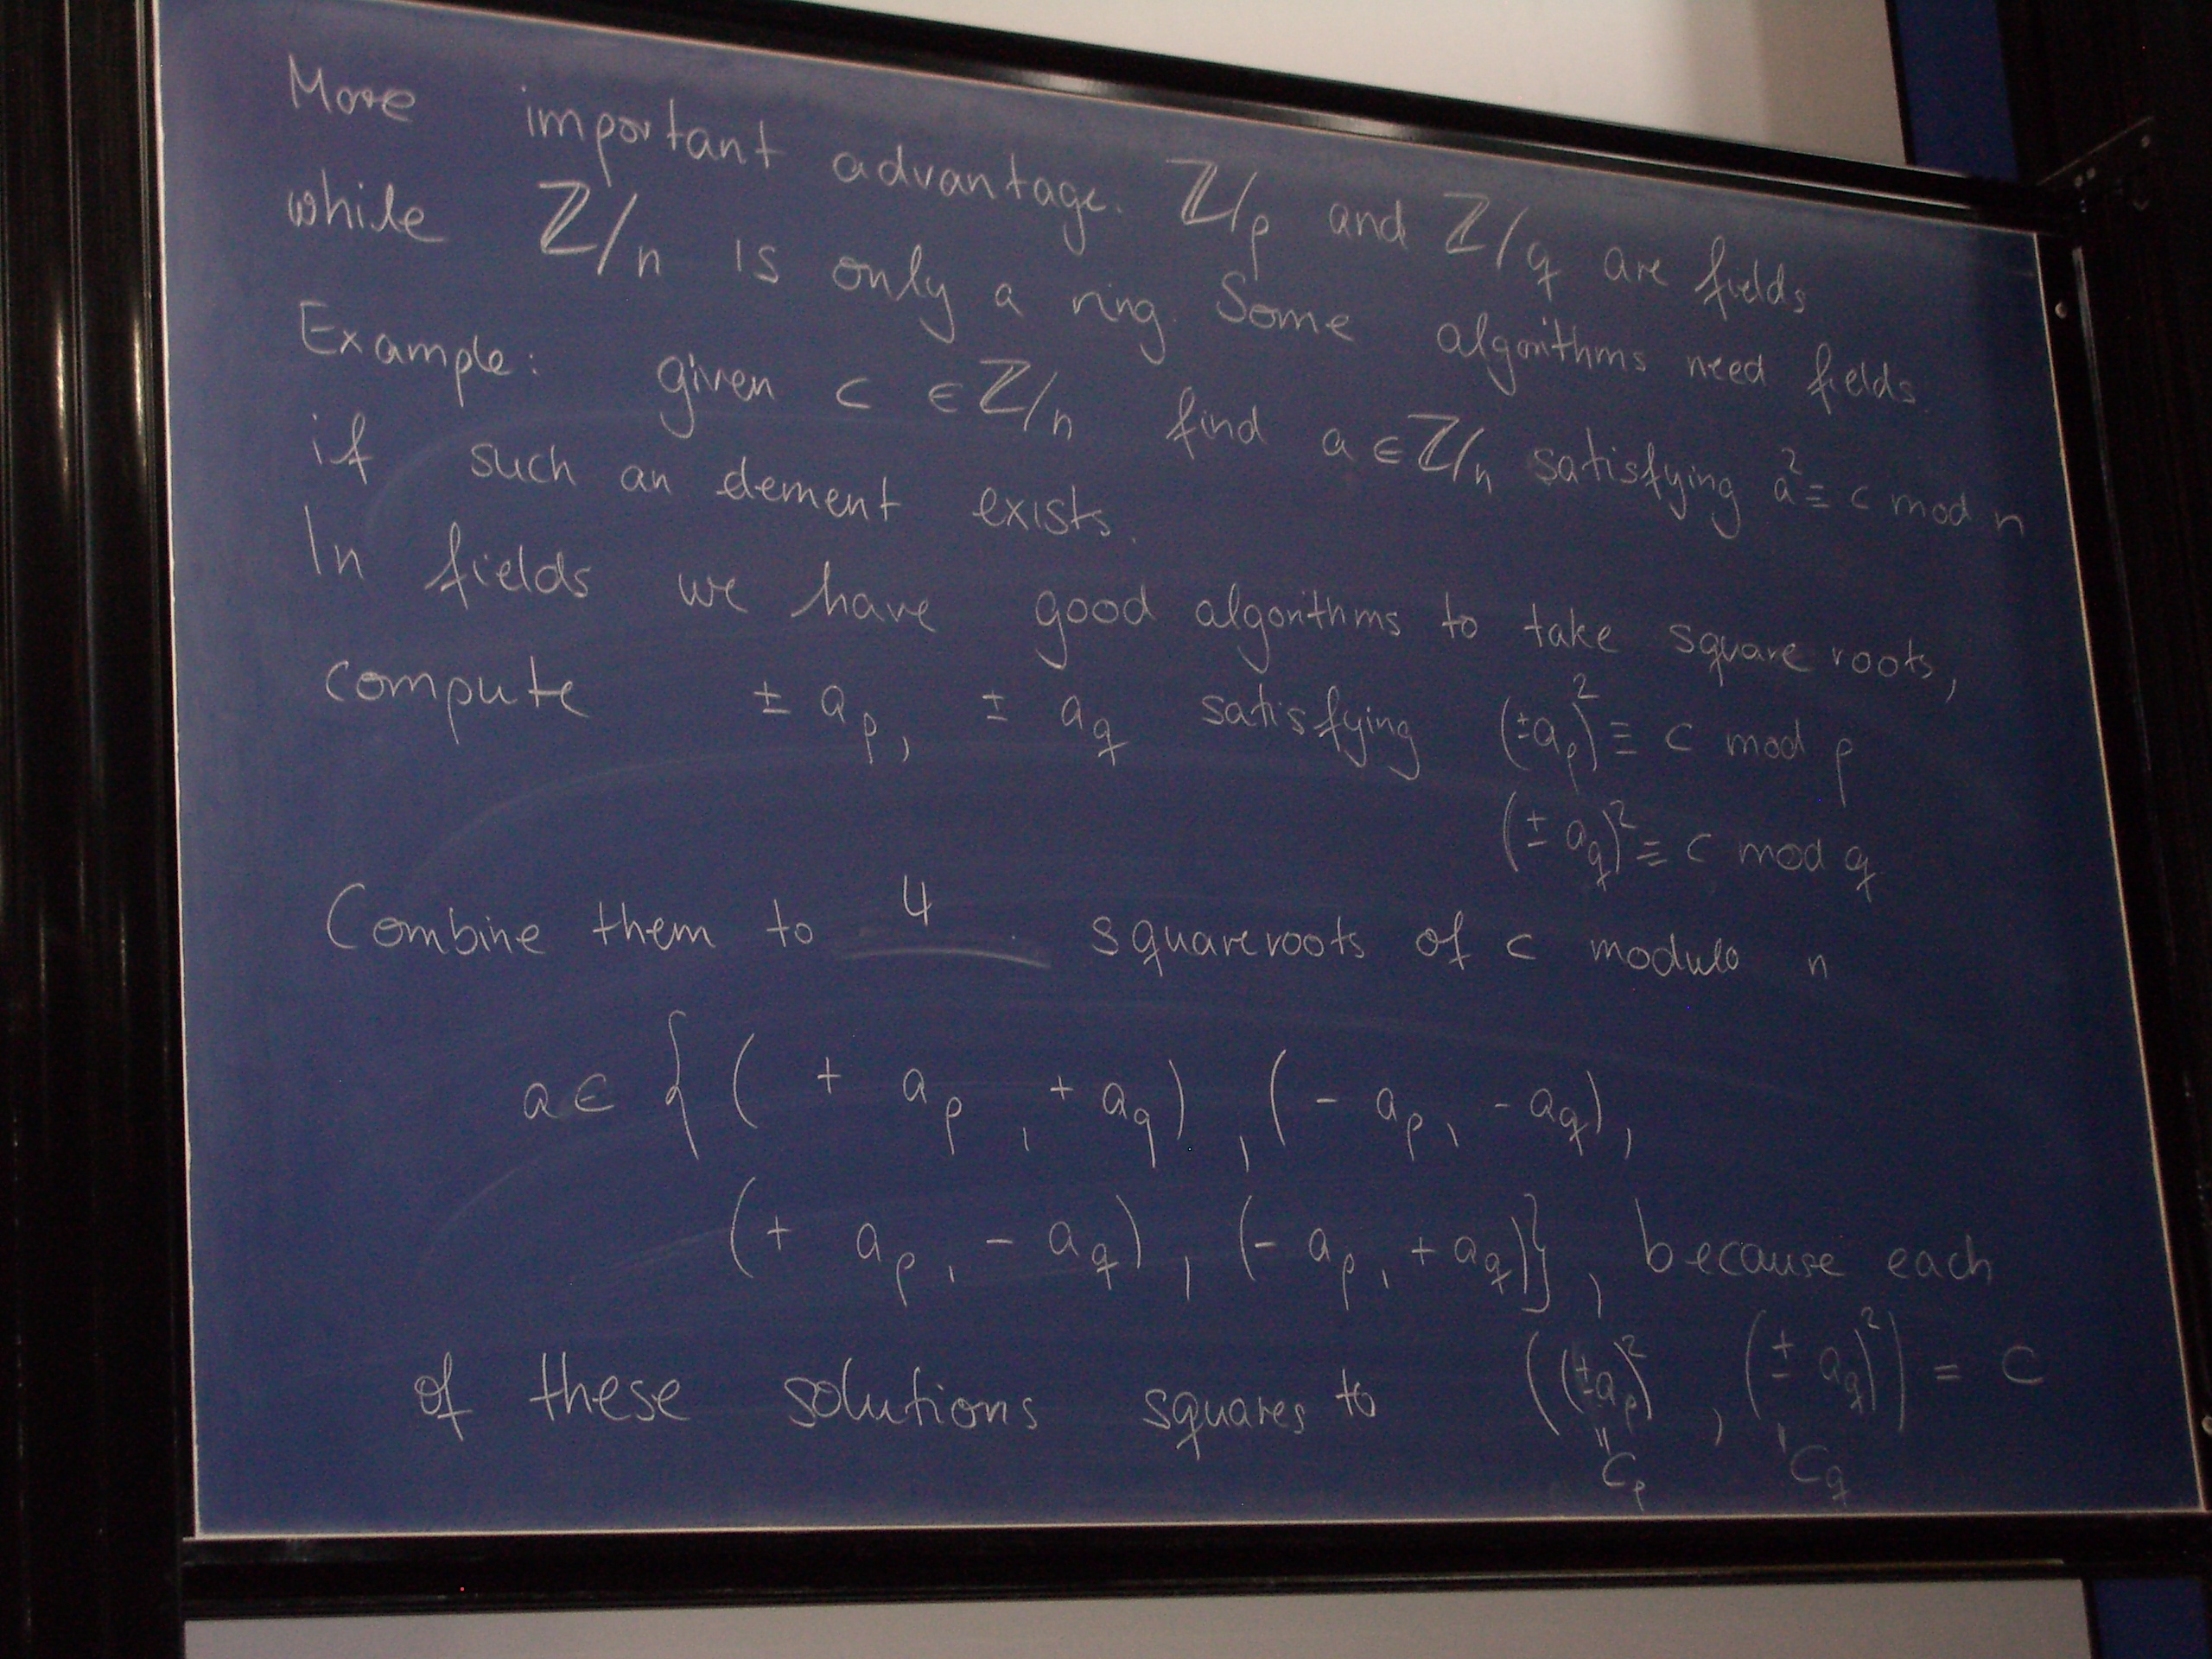 More important advantage. ℤ/p and ℤ/q are fields
while ℤ/n is only a ring. Some algorithms need fields.
Example: given c ∈ ℤ/n find a ∈ ℤ/n satisfying a² ≡ c mod n
if such an element exists.
In fields we have good algorithms to take square roots,
compute ± a_p, ± a_q satisfying (±a_p)² ≡ c mod p
(± a_q)² ≡ c mod q
Combine them to 4 squareroots of c modulo n
a ∈ { ( + a_p , + a_q) , (- a_p, - a_q),
(+ a_p, - a_q) , (- a_p, + a_q)} , because each
of these solutions squares to ((±a_p)² , (± a_q)²) = C
" "
C_p C_q